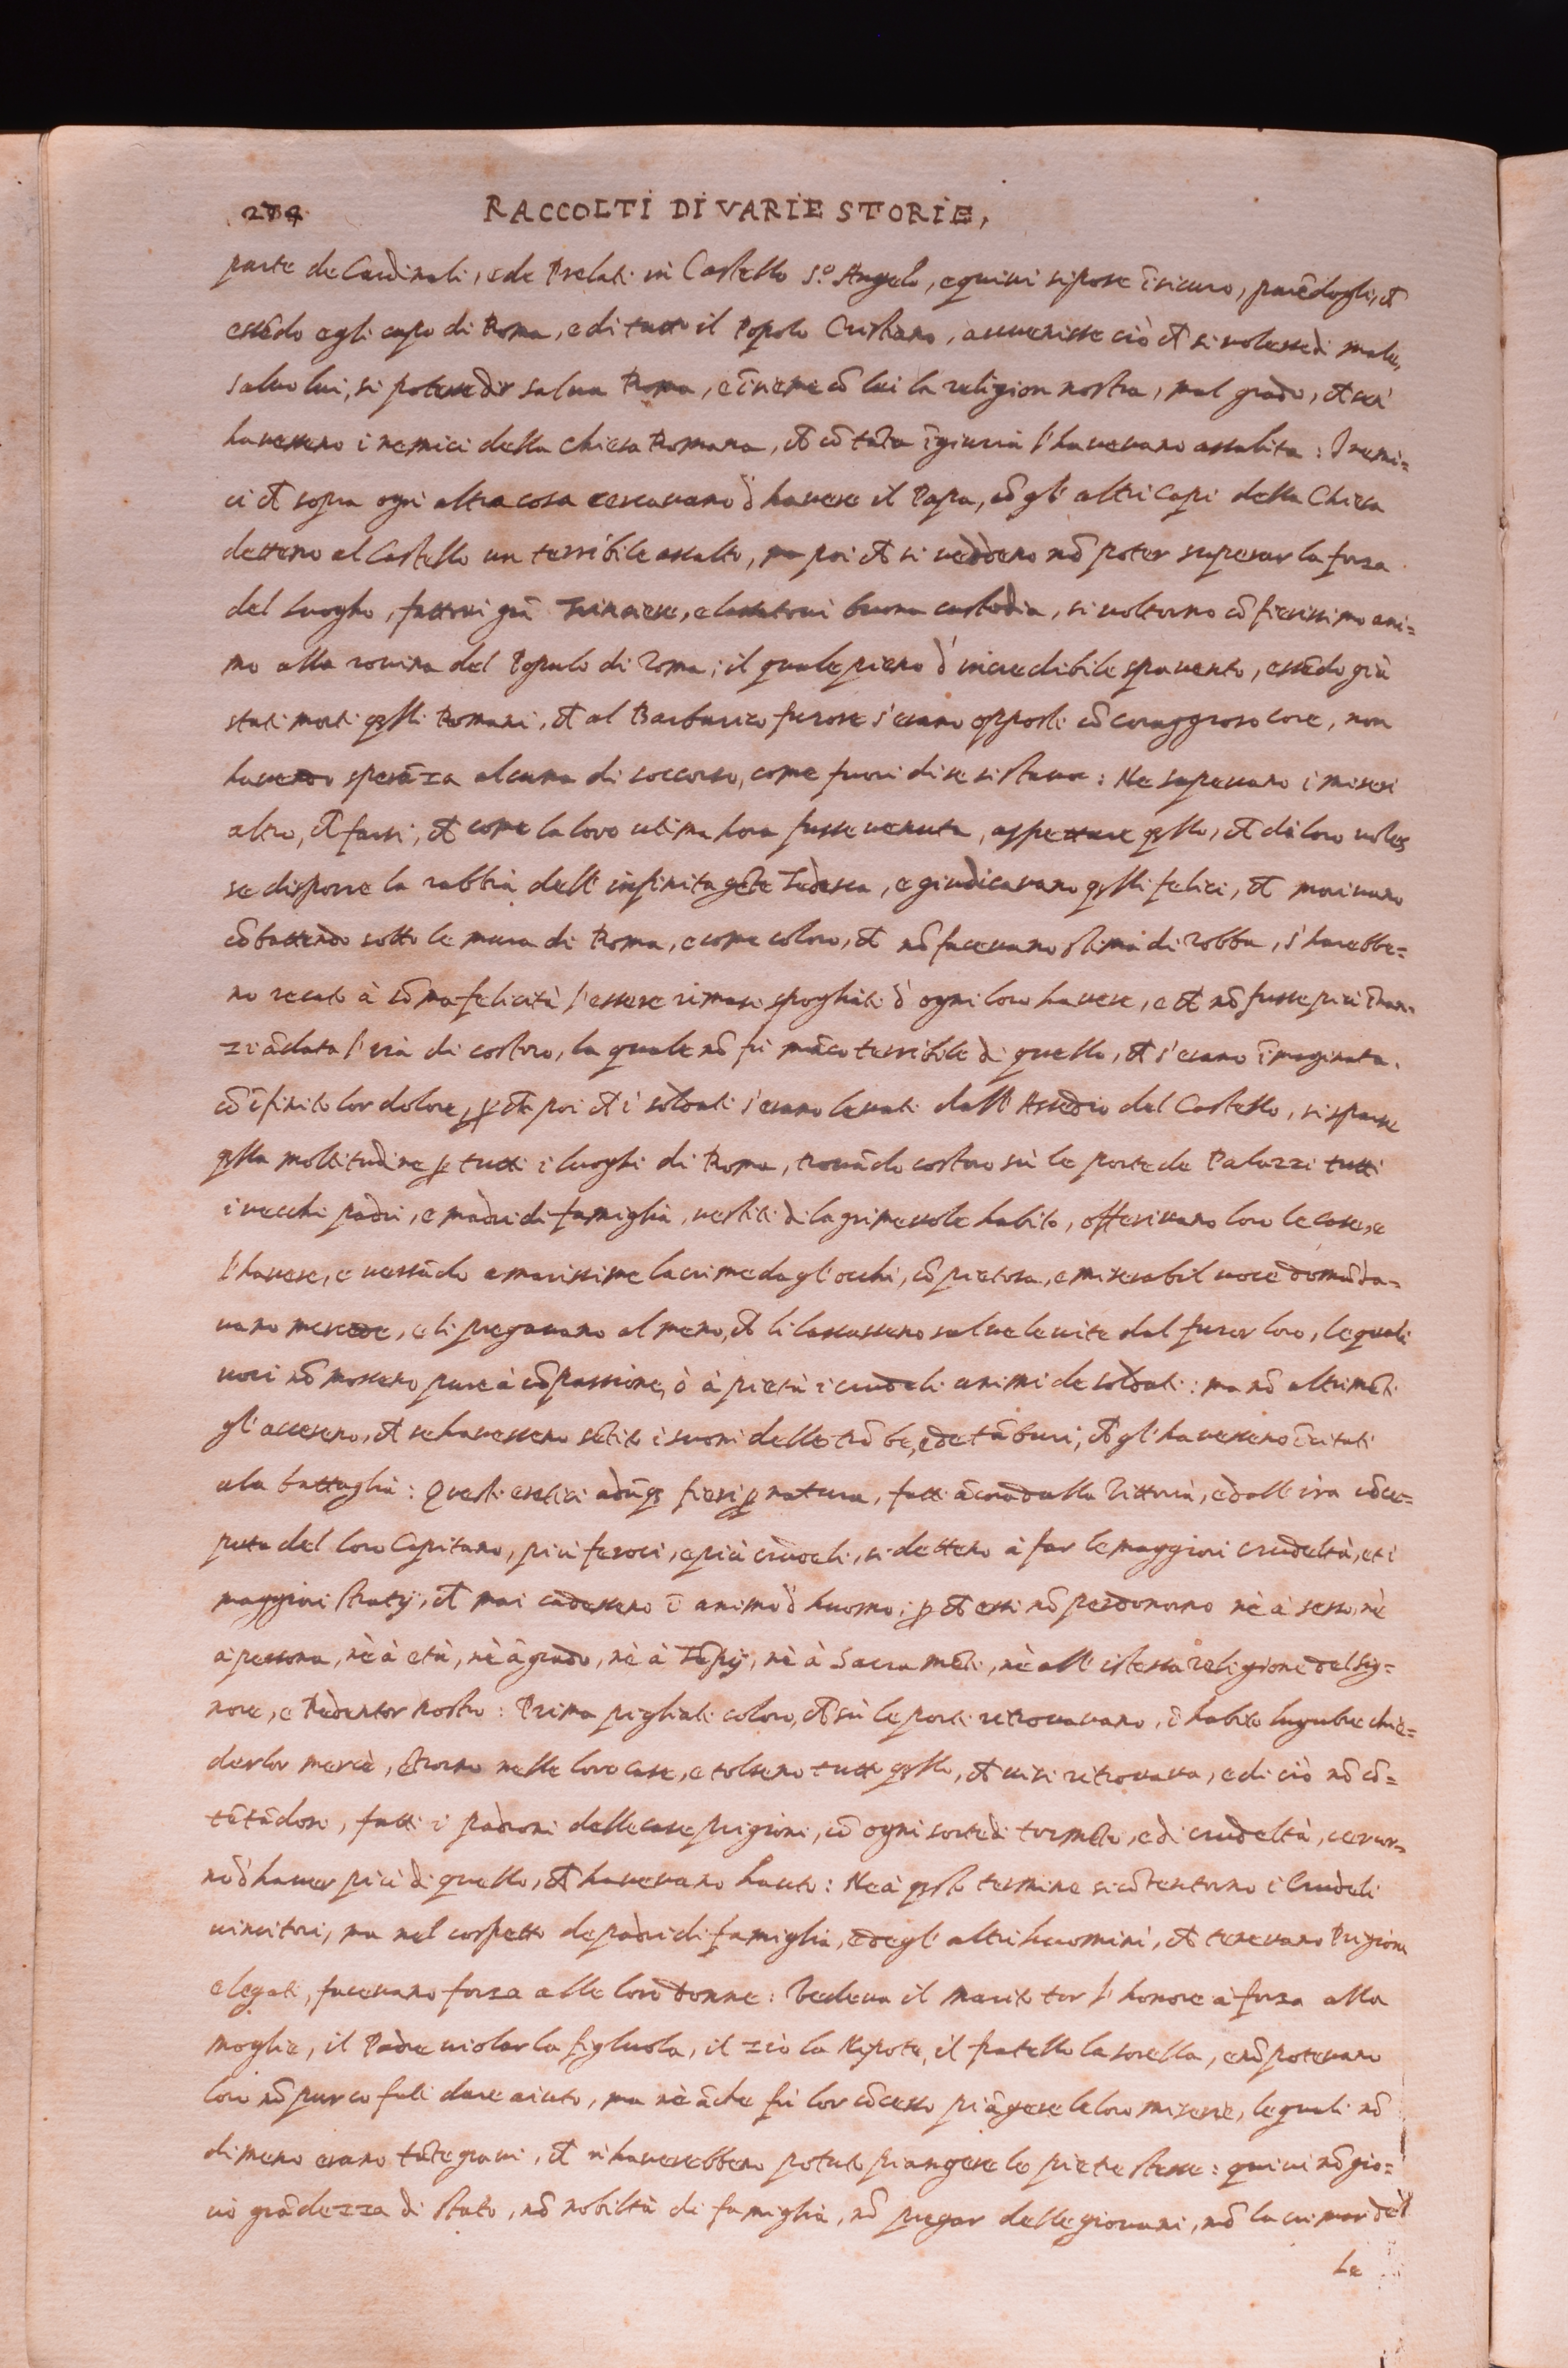 274 RACCOLTI DI VARIE STORIE,
parte de Cardinali, e de Prelati in Castello S.º Angelo, e quivi si pose ĩ sicuro, parẽdogli, ch̃
essẽdo egli capo di Roma, e di tutto il Popolo Cristiano, avvenisse ciò ch̃ si volesse di male,
salvo lui, si potesse dir salva Roma, e ĩsieme cõ lui la religion nostra, mal grado, ch̃ n'
havessero i nemici della chiesa Romana, ch̃ cõ tãta ĩgiuria l'havevano assalita: I nemi=
ci ch̃ sopra ogni altra cosa cercavano d'havere il Papa, cõ gl'altri Capi della Chiesa
dettero al Castello un terribile assalto, ma poi ch̃ si veddero nõ poter superar la forza
del luogho, fattovi già Trinciere, e lassatovi buona custodia, si voltorno cõ fierissimo ani=
mo alla rovina del Popolo di Roma; il quale pieno d'incredibile spavento, essẽdo già
stati morti q̃lli Romani, ch̃ al Barbarico furore s'erano opposti cõ coraggioso core, non
havendo sperãza alcuna di soccorso, come fuori di se si stava: Ne sapevano i miseri
altro, ch̃ farsi, ch̃ come la loro ultima hora fusse venuta, aspettare q̃llo, ch̃ di loro voles
se disporre la rabbia dell'infinita gẽte Tedesca, e giudicavano q̃lli felici, ch̃ morivano
cõbattendo sotto le mura di Roma, e come coloro, ch̃ nõ facevano stima di robba, s'harebbe=
no recato à sõma felicità l'essere rimasi spogliati d'ogni loro havere, e ch̃ nõ fusse più ĩnan=
zi ãdata l'ira di costoro, la quale nõ fù mãco terribile di quello, ch̃ s'erano ĩmaginata.
cõ ĩfinito lor dolore, p̱ ch̃ poi ch̃ i soldati s'erano levati dall'Assedio del Castello, si sparse
q̃lla moltitudine p̱ tutti i luoghi di Roma, trovãdo costoro sù le porte de Palazzi tutti
i vecchi padri, e madri di famiglia, vestiti di lagrimevole habito, offerivano loro le case, e
l'havere, e versãdo amarissime lacrime dagl'occhi, cõ pietosa, e miserabil voce domãda=
vano mercede, e li pregavano al meno, ch̃ li lassassero salve le vite dal furor loro, le quali
voci nõ mossero pure à cõpassione, ò à pietà i crudeli animi de soldati: ma nõ altrimẽti
gl'accesero, ch̃ se havessero sẽtito i suoni delle trõbe, e de tãburi, ch̃ gl'havessero ĩcitati
ala battaglia: Questi eretici adũq̃ fieri p̱ natura, fatti ãcora dalla Vittoria, e dall'ira cõce=
puta del loro Capitano, più feroci, e più crudeli, si dettero à far le maggiori crudeltà, et i
maggiori stratij, ch̃ mai cadessero ĩ animo d'huomo; p̱ ch̃ essi nõ perdonorno nè à sesso, nè
à persona, nè à età, nè à grado, nè à Tẽpij, nè à Sacramẽti, nè all'istessa religione del Sig=
nore, e Redentor nostro: Prima pigliati coloro, ch̃ sù le porti ritrovavano, ĩ habito lugubre chie=
der lor mercè, ẽtrorno nelle loro case, e tolsero tutto q̃llo, ch̃ vi si ritrovava, e di ciò nõ cõ=
tẽtãdosi, fatti i padroni delle case prigioni, cõ ogni sorte di tormẽto, e di crudeltà, cercor=
no d'haver più di quello, ch̃ havevano hauto: Ne à q̃sto termine si cõtentorno i Crudeli
vincitori, ma nel cospetto de padri di famiglia, e degl'altri huomini, ch̃ tenevano Prigioni
e legati, facevano forza alle loro donne: Vedeva il marito tor l'honore à forza alla
moglie, il Padre violar la figluola, il zio la Nipote, il fratello la sorella, e nõ potevano
loro nõ pur co fati dare aiuto, ma nè ãche fù lor cõcesso piãgere le loro miserie, le quali nõ
dimeno erano tãte gravi, ch̃ n'haverebbero potuto piangere le pietre stesse: quivi nõ gio=
vò grãdezza di stato, nõ nobiltà di famiglia, nõ pregar delle giovani, nõ lacrimar del
Le